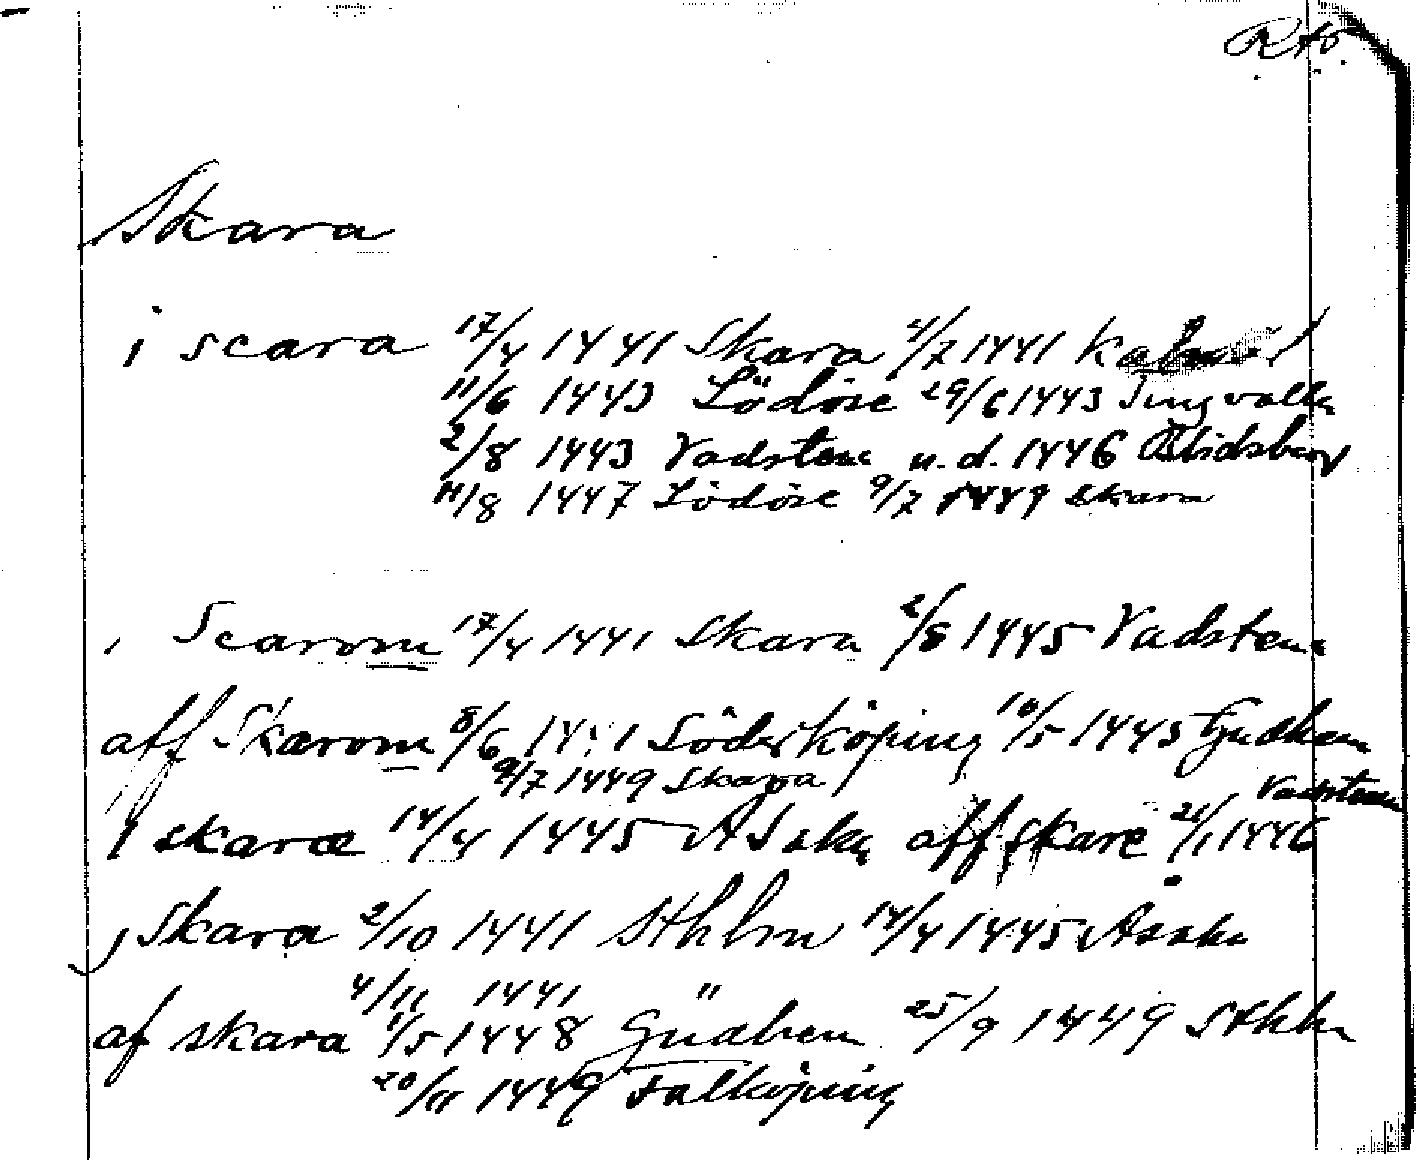 Rto.
Skara
i scara 17/4 1441 Skara 2/7 1441
11/6 1443 Lödöse 29/6 1443
2/8 1443 Vadstena u.d. 1446
11/8 1447 Lödöse 9/7 1449 Skara
i Scarom 17/4 1441 Skara 2/8 1445 Vadstena
aff Skarom 8/6 1441 Söderköping 10/5 1443 Gudhem
9/7 1449 Skara
Vadstena
I skaræ 14/4 1445 Aska aff skare 21/1 1446
j Skara 2/10 1441 Sthlm 14/4 1445 Aska
4/11 1441 "
af skara 1/5 1448 Gudhem 25/9 1449 Sthlm
20/11 1449 Falköping